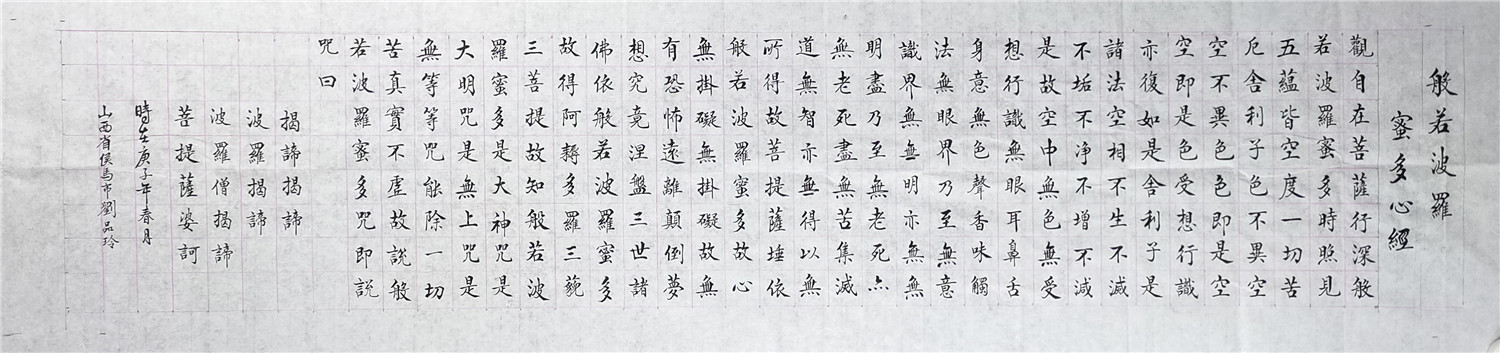 般若波羅
蜜多心經
觀自在菩薩行深般
若波羅蜜多時照見
五蘊皆空度一切苦
厄舍利子色不異空
空不異色色即是空
空即是色受想行識
亦復如是舍利子是
諸法空相不生不滅
不垢不净不增不減
是故空中無色無受
想行識無眼耳鼻舌
身意無色聲香味觸
法無眼界乃至無意
識界無無明亦無無
明盡乃至無老死亦
無老死盡無苦集滅
道無智亦無得以無
所得故菩提薩埵依
般若波羅蜜多故心
無掛礙無掛礙故無
有恐怖遠離顛倒夢
想究竟涅盤三世諸
佛依般若波羅蜜多
故得阿耨多羅三藐
三菩提故知般若波
羅蜜多是大神咒是
大明咒是無上咒是
無等等咒能除一切
苦真實不虛故說般
若波羅蜜多咒即說
咒曰
揭諦揭諦
波羅揭諦
波羅僧揭諦
菩提薩婆訶
時在庚子年春月
山西省侯馬市劉品玲